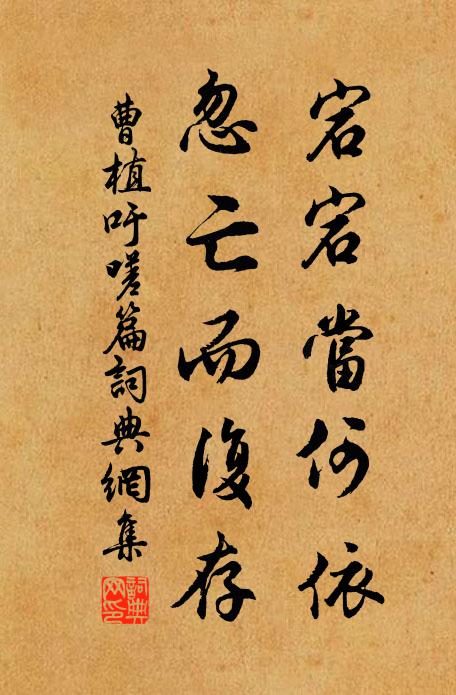 宕宕當何依
忽亡而復存
曹植吁嗟篇詞典網集
詞典網印